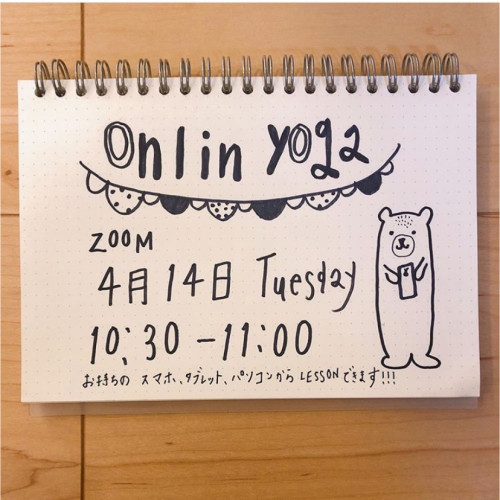 Onlin yoga
ZOOM
4月14日 Tuesday
10:30-11:00
お持ちの スマホ、タブレット、パソコンから LESSONできます!!!